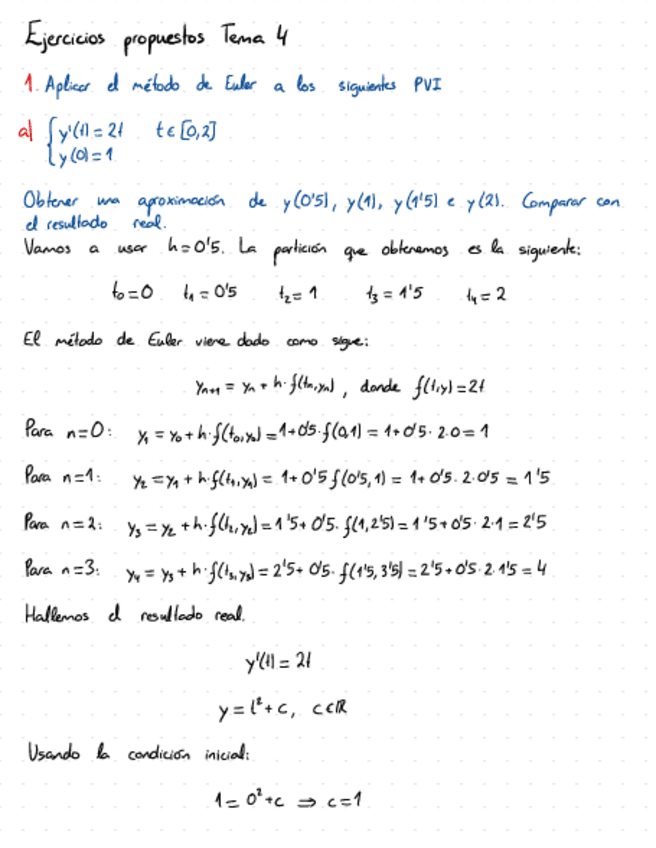 Ejercicios propuestos Tema 4
1. Aplicar el método de Euler a los siguientes PVI
a) { y'(t) = 2t    t ∈ [0,2]
y(0) = 1
Obtener una aproximación de y(0'5), y(1), y(1'5) e y(2). Comparar con
el resultado real.
Vamos a usar h = 0'5. La partición que obtenemos es la siguiente:
t₀ = 0    t₁ = 0'5    t₂ = 1    t₃ = 1'5    t₄ = 2
El método de Euler viene dado como sigue:
yₙ₊₁ = yₙ + h·f(tₙ,yₙ), donde f(t,y) = 2t
Para n=0: y₁ = y₀ + h·f(t₀,y₀) = 1+0'5·f(0,1) = 1+0'5·2·0 = 1
Para n=1: y₂ = y₁ + h·f(t₁,y₁) = 1+0'5 f(0'5,1) = 1+0'5·2·0'5 = 1'5
Para n=2: y₃ = y₂ + h·f(t₂,y₂) = 1'5+0'5·f(1,2'5) = 1'5+0'5·2·1 = 2'5
Para n=3: y₄ = y₃ + h·f(t₃,y₃) = 2'5+0'5·f(1'5,3'5) = 2'5+0'5·2·1'5 = 4
Hallemos el resultado real.
y'(t) = 2t
y = t² + c, c∈ℝ
Usando la condición inicial:
1 = 0² + c ⇒ c = 1